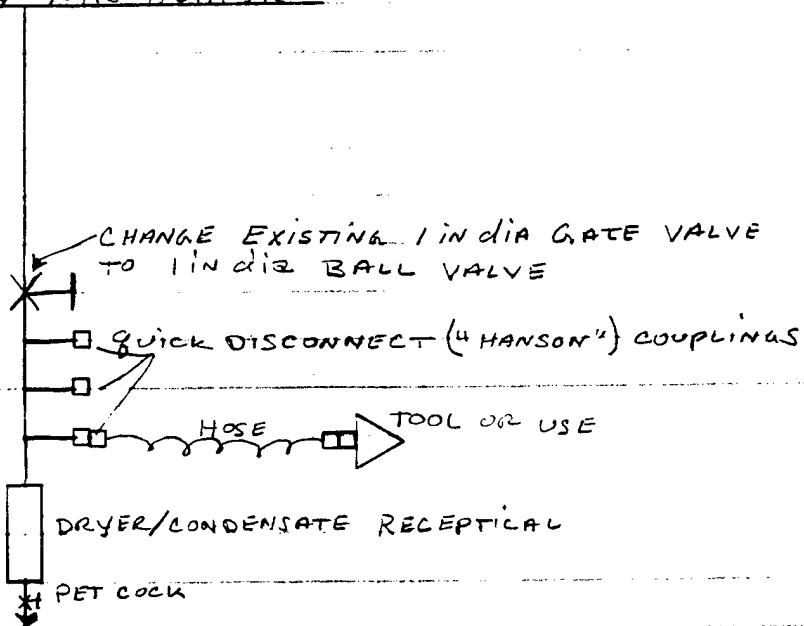 CHANGE EXISTING 1 IN diA GATE VALVE
TO 1 IN dia BALL VALVE
QUICK DISCONNECT ("HANSON") COUPLINGS
HOSE
TOOL OR USE
DRYER/CONDENSATE RECEPTICAL
PET COCK